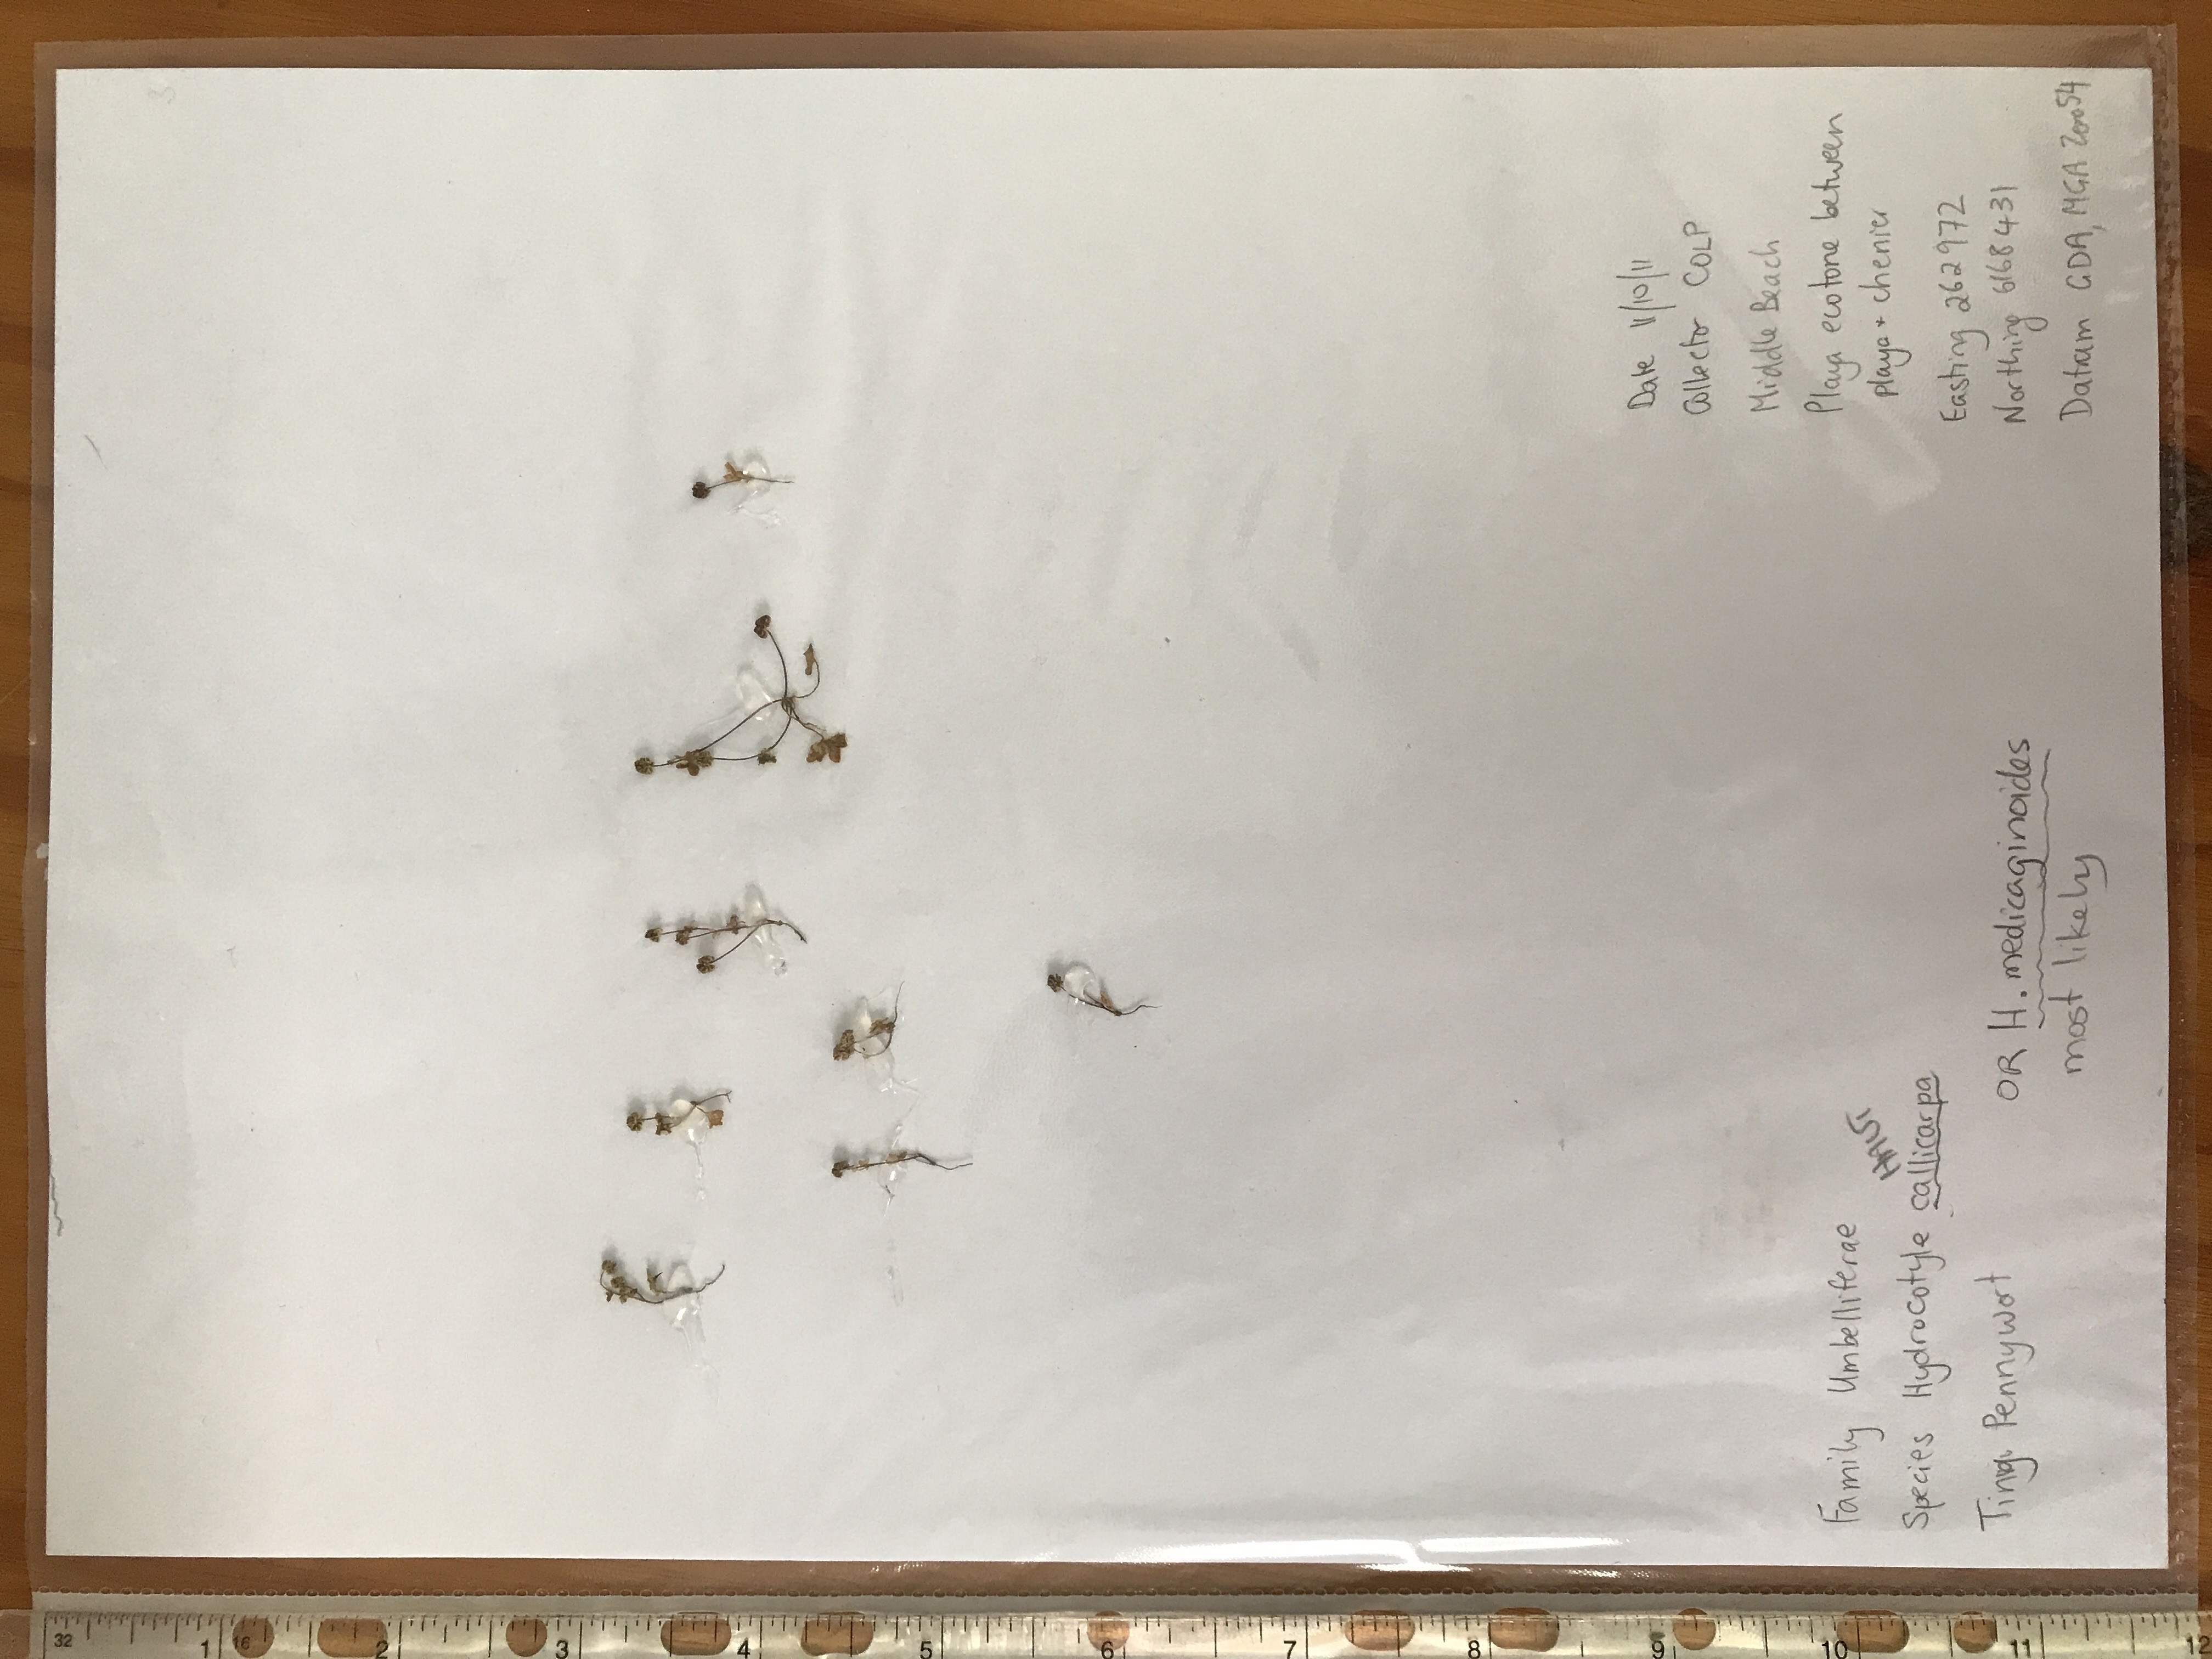 32
1
16
2
3
4
5
6
7
8
9
10
11
12
3
Date 11/10/11
Collector COLP
Middle Beach
Playa ecotone between
playa + chenier
Easting 262972
Northing 6168431
Datum GDA, MGA Zone 54
Family Umbelliferae
Species Hydrocotyle callicarpa
Pennywort
OR H. medicaginoides
most likely